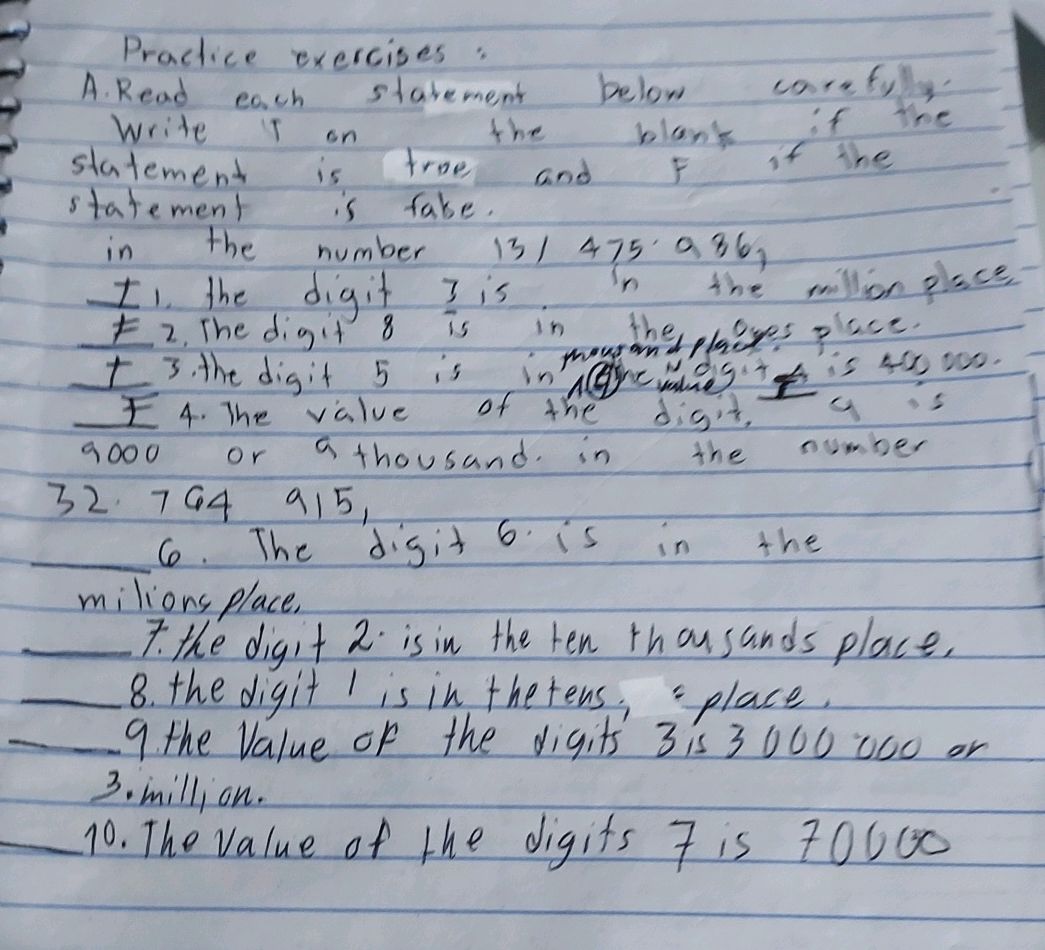 Practice exercises :
A. Read each statement below carefully.
Write T on the blank if the
statement is troe and F if the
statement is fabe.
in the number 131 475 986,
T 1. the digit 3 is in the million place
F 2. The digit 8 is in the ones place.
T 3. the digit 5 is in thousand place. the value digit 4 is 400 000.
F 4. The value of the digit, 9 is
9000 or 9 thousand. in the number
32. 764 915,
___ 6. The digit 6 is in the
milions place,
___ 7. the digit 2 is in the ten thousands place.
___ 8. the digit 1 is in the tens, place.
___ 9. the Value of the digits 3 is 3 000 000 or
3. million.
___ 10. The Value of the digits 7 is 70000